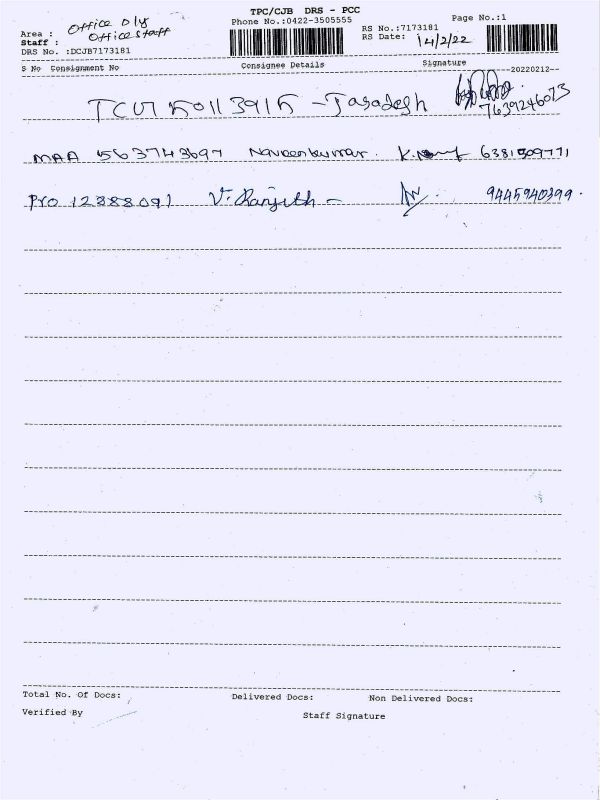 TPC/CJB DRS - PCC
Phone No.:0422-3505555
Page No.:1
Area : Office Dly
Staff : Office staff
RS No.:7173181
RS Date: 14/2/22
DRS No. :DCJB7173181
S No Consignment No Consignee Details Signature
--20220212--
7639246073
MAA 563743697 Naveenkumar. 6381509771
Pro 12388091 V. Ranjith - 9445940399.
Total No. Of Docs: Delivered Docs: Non Delivered Docs:
Verified By Staff Signature